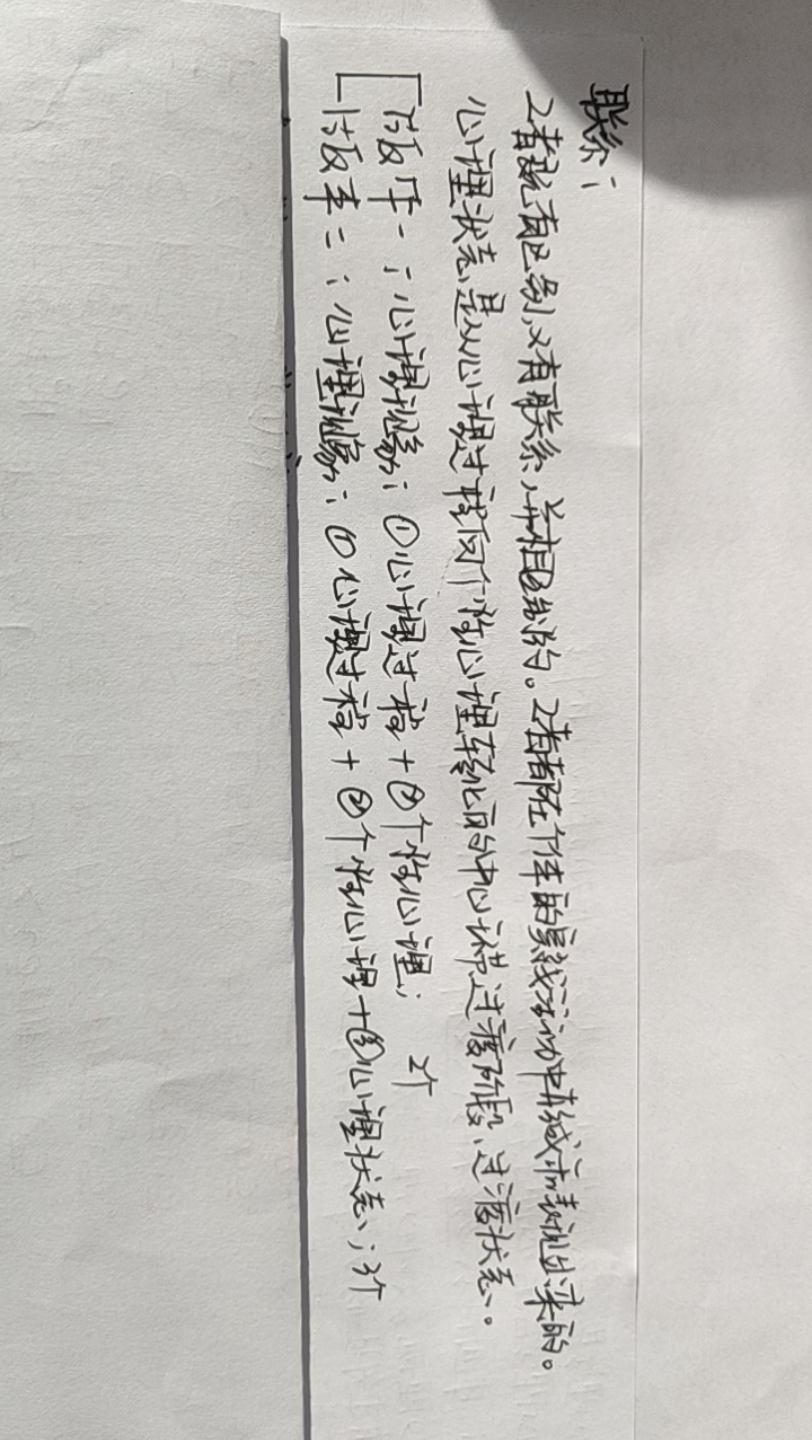 联系：
2者既有区别，又有联系，并相互制约。2者都在个体的实践活动中形成和表现出来的。
心理状态是从心理过程向个性心理转化的中心环节过渡阶段、过渡状态。
版本一：心理现象：①心理过程+②个性心理； 2个
版本二：心理现象：①心理过程+②个性心理+③心理状态；3个